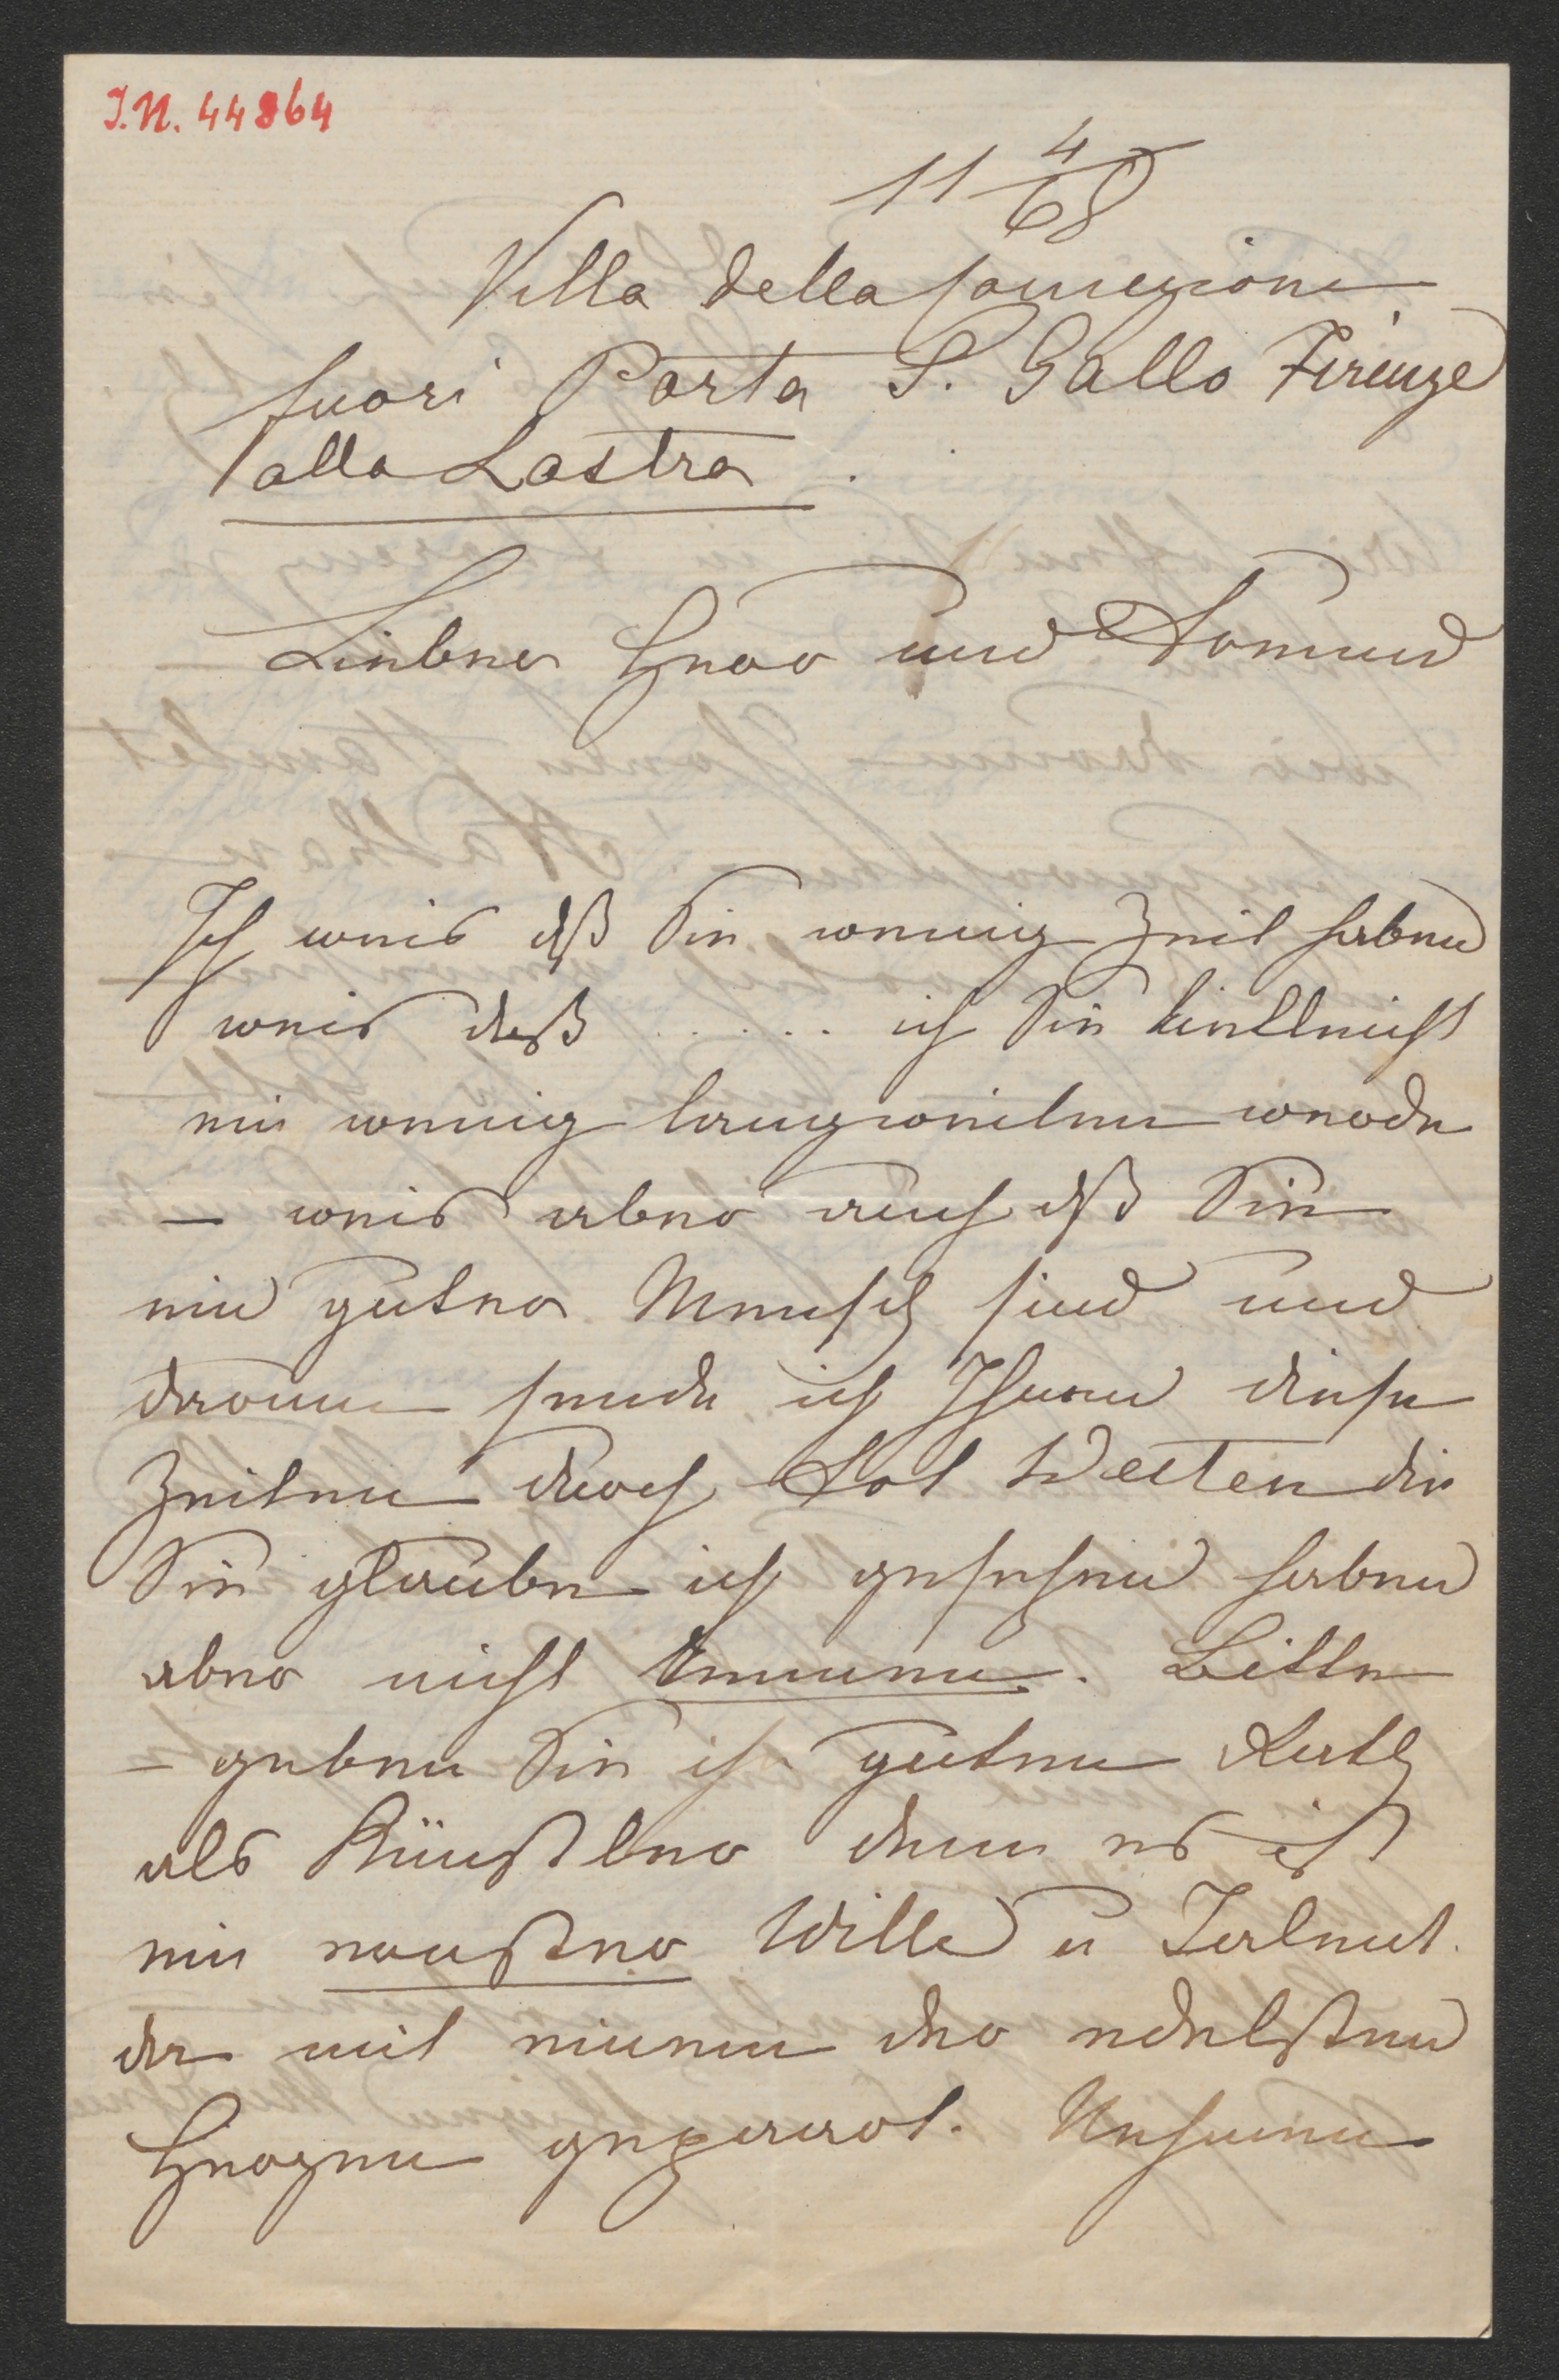 I.N. 44864
11 4/68
Villa della Concezione
fuori Porta S. Gallo Firenze
alla Lastra
Lieber Herr und Freund
Ich weis dß Sie wenig Zeit haben
weis daß ..... ich Sie vielleicht
ein wenig langweilen werde
– weis aber auch dß Sie
ein guter Mensch sind und
darum sende ich Ihnen diese
Zeilen durch Frl Welten die
Sie glaube ich gesehen haben
aber nicht kennen. Bitte
– geben Sie ihr guten Rath
als Künstler denn es ist
ein ernster Wille u Talent
der mit einem der edelsten
Herzen gepaart. Nehmen